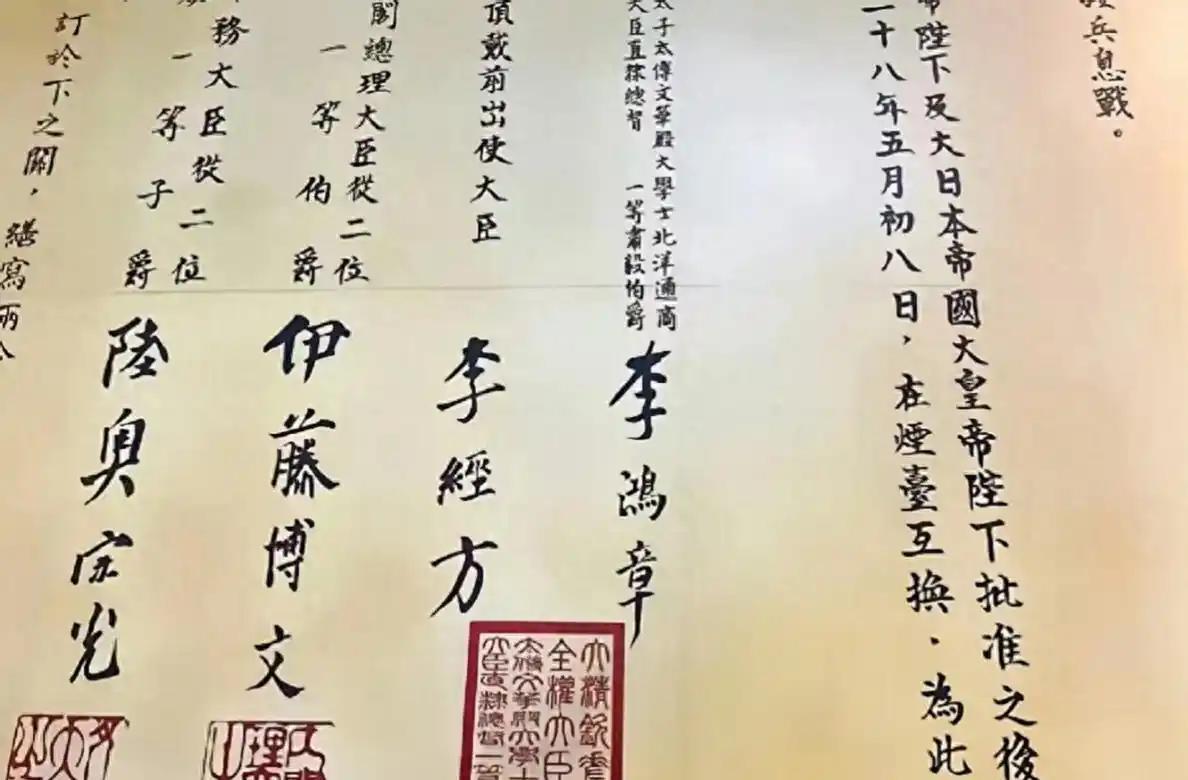 兵息戰。
帝陛下及大日本帝國大皇帝陛下批准之後
二十八年五月初八日，在煙臺互換．為此
太子太傅文華殿大學士北洋通商
大臣直隸總督　一等肅毅伯爵
李鴻章
頂戴前出使大臣
李經方
閣總理大臣從二位
一等伯爵
伊藤博文
務大臣從二位
一等子爵
陸奥宗光
訂於下之關，
繕寫兩
大清欽差
全權大臣
太傅文華殿大學士
大臣直隸總督一等